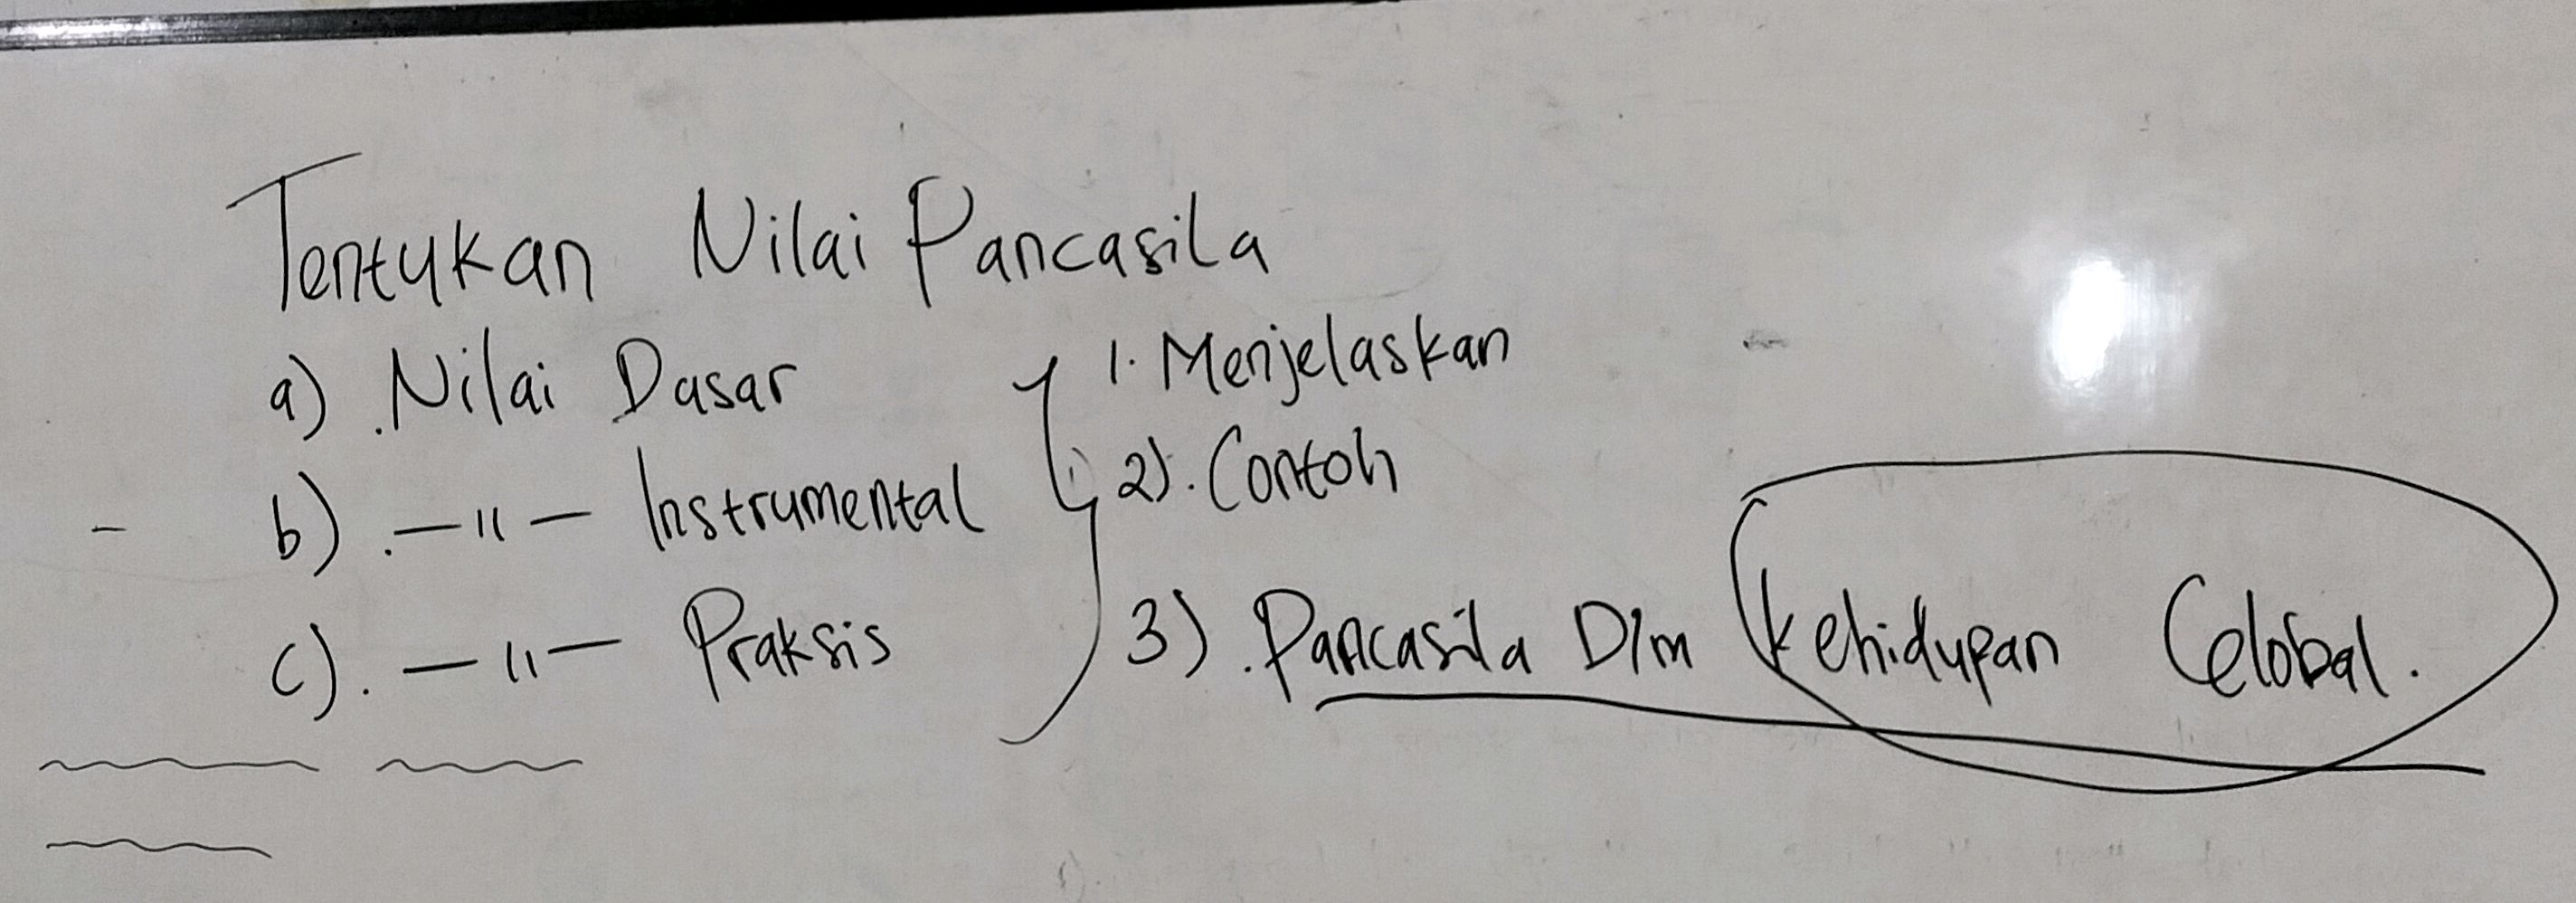 Tentukan Nilai Pancasila
a) . Nilai Dasar
b) . —〃— Instrumental
c) . —〃— Praksis
1. Menjelaskan
2). Contoh
3) . Pancasila Dlm Kehidupan Global.